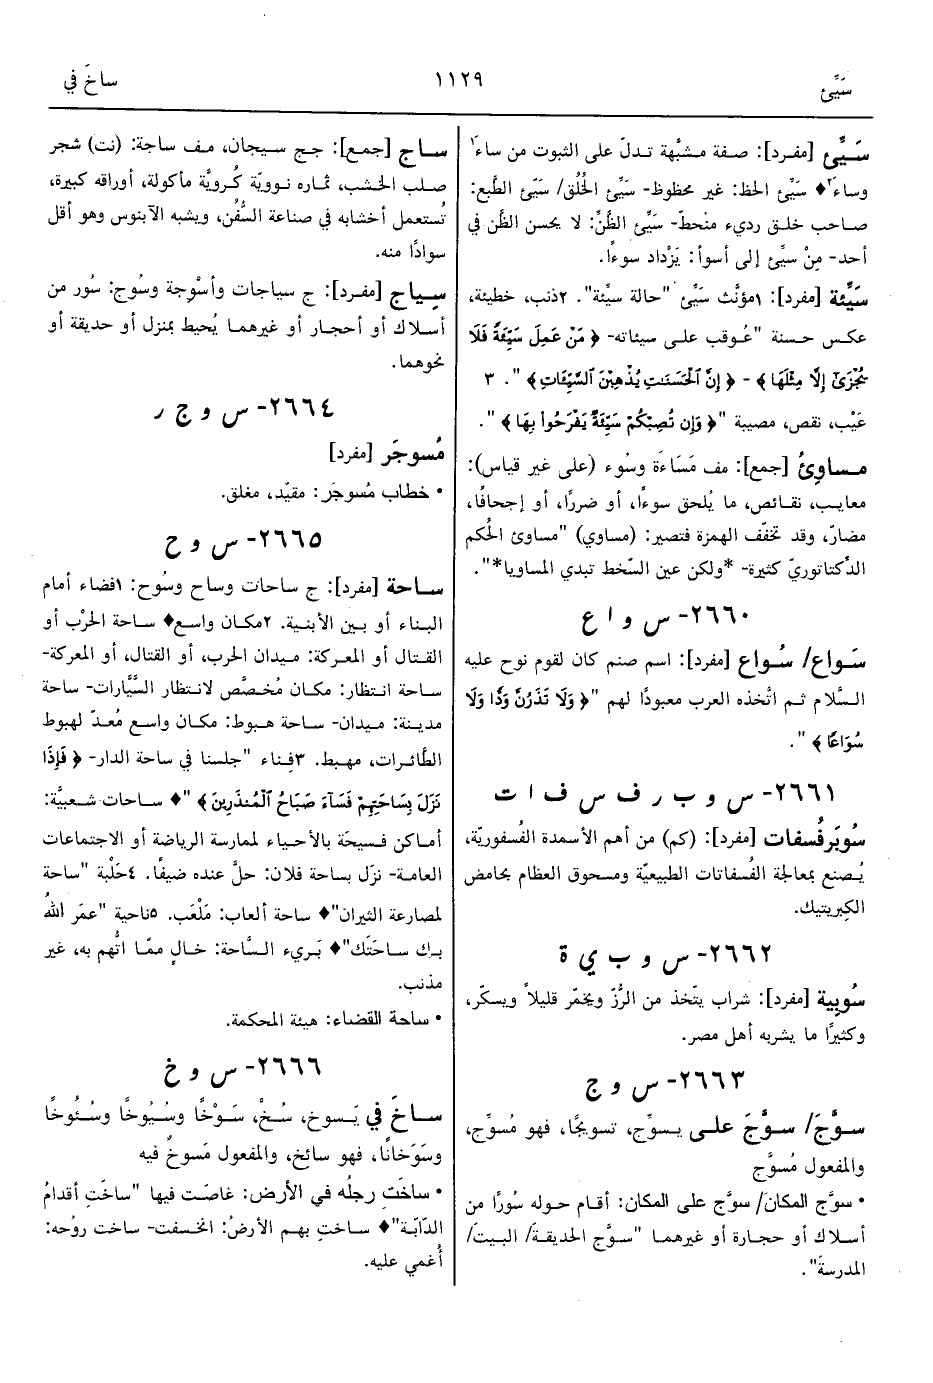 سَيِّئ
١١٢٩
ساخَ في
سَيِّئ [مفرد]: صفة مشبَّهة تدلّ على الثبوت من ساءَ١
وساء٢♦ سَيِّئ الحظ: غير محظوظ- سَيِّئ الخُلُق/ سَيِّئ الطَّبع:
صاحب خلق رديء منْحطّ- سَيِّئ الظَّنِّ: لا يحسن الظّن في
أحد- مِنْ سيِّئ إلى أسوأ: يَزْداد سوءًا.
سَيِّئة [مفرد]: ١مؤنَّث سَيِّئ "حالة سيِّئة". ٢ذنب، خطيئة،
عكس حسنة "عُوقب على سيئاته- ﴿ مَنْ عَمِلَ سَيِّئَةً فَلَا
يُجْزَىٰ إِلَّا مِثْلَهَا ﴾- ﴿ إِنَّ الْحَسَنَٰتِ يُذْهِبْنَ السَّيِّئَاتِ ﴾ ". ٣
عَيْب، نقص، مصيبة "﴿ وَإِن تُصِبْكُمْ سَيِّئَةٌ يَفْرَحُوا بِهَا ﴾ ".
مساوِئُ [جمع]: مف مَسَاءَة وسُوء (على غير قياس):
معايب، نقائص، ما يُلحق سوءًا، أو ضررًا، أو إجحافًا،
مضارّ، وقد تخفَّف الهمزة فتصير: (مساوي) "مساوئ الحُكم
الدِّكتاتوريّ كثيرة- *ولكن عين السّخط تبدي المساويا*".
٢٦٦٠- س و ا ع
سَواع/ سُواع [مفرد]: اسم صنم كان لقوم نوح عليه
السَّلام ثم اتَّخذه العرب معبودًا لهم "﴿ وَلَا تَذَرُنَّ وَدًّا وَلَا
سُوَاعًا ﴾ ".
٢٦٦١- س و ب ر ف س ف ا ت
سُوبَرفُسفات [مفرد]: (كم) من أهم الأسمدة الفُسفوريّة،
يُصنع بمعالجة الفُسفاتات الطبيعيّة ومسحوق العظام بحامض
الكِبريتيك.
٢٦٦٢- س و ب ي ة
سُوبِية [مفرد]: شراب يتّخذ من الرُّزّ ويخمّر قليلاً ويسكّر،
وكثيرًا ما يشربه أهل مصر.
٢٦٦٣- س و ج
سوَّجَ/ سوَّجَ على يسوِّج، تسويجًا، فهو مُسوِّج،
والمفعول مُسوَّج
• سوَّج المكان/ سوَّج على المكان: أقام حوله سُورًا من
أسلاك أو حجارة أو غيرهما "سوَّج الحديقةَ/ البيتَ/
المدرسةَ".
ساج [جمع]: جج سيجان، مف ساجة: (نت) شجر
صلب الخشب، ثماره نوويّة كُرويَّة مأكولة، أوراقه كبيرة،
تُستعمل أخشابه في صناعة السُّفُن، ويشبه الآبنوس وهو أقل
سوادًا منه.
سِياج [مفرد]: ج سياجات وأسْوِجة وسُوج: سُور من
أسلاك أو أحجار أو غيرهما يُحيط بمنزل أو حديقة أو
نحوهما.
٢٦٦٤- س و ج ر
مُسوجَر [مفرد]
• خطاب مُسوجَر: مقيّد، مغلق.
٢٦٦٥- س و ح
ساحة [مفرد]: ج ساحات وساح وسُوح: ١فضاء أمام
البناء أو بين الأبنية. ٢مكان واسع♦ ساحة الحرْب أو
القتال أو المعركة: ميدان الحرب، أو القتال، أو المعركة-
ساحة انتظار: مكان مُخصَّص لانتظار السَّيَّارات- ساحة
مدينة: ميدان- ساحة هبوط: مكان واسع مُعدّ لهبوط
الطّائرات، مهبط. ٣فِناء "جلسنا في ساحة الدار- ﴿ فَإِذَا
نَزَلَ بِسَاحَتِهِمْ فَسَآءَ صَبَاحُ الْمُنذَرِينَ ﴾ "♦ ساحات شعبيَّة:
أماكن فسيحَة بالأحياء لممارسة الرياضة أو الاجتماعات
العامة- نزَل بساحة فلان: حلَّ عنده ضيفًا. ٤حَلْبة "ساحة
لمصارعة الثيران"♦ ساحة ألعاب: مَلْعَب. ٥ناحية "عمَر اللهُ
بك ساحَتَك"♦ بَريء السَّاحة: خالٍ ممّا اتُّهم به، غير
مذنب.
• ساحة القضاء: هيئة المحكمة.
٢٦٦٦- س و خ
ساخَ في يَسوخ، سُخْ، سَوْخًا وسُيُوخًا وسُئُوخًا
وسَوَخانًا، فهو سائخ، والمفعول مَسوخٌ فيه
• ساخَت رجلُه في الأرض: غاصَت فيها "ساخَتِ أقدامُ
الدّابّة"♦ ساختِ بهم الأرضُ: انخسفت- ساخت روُحه:
أُغمي عليه.